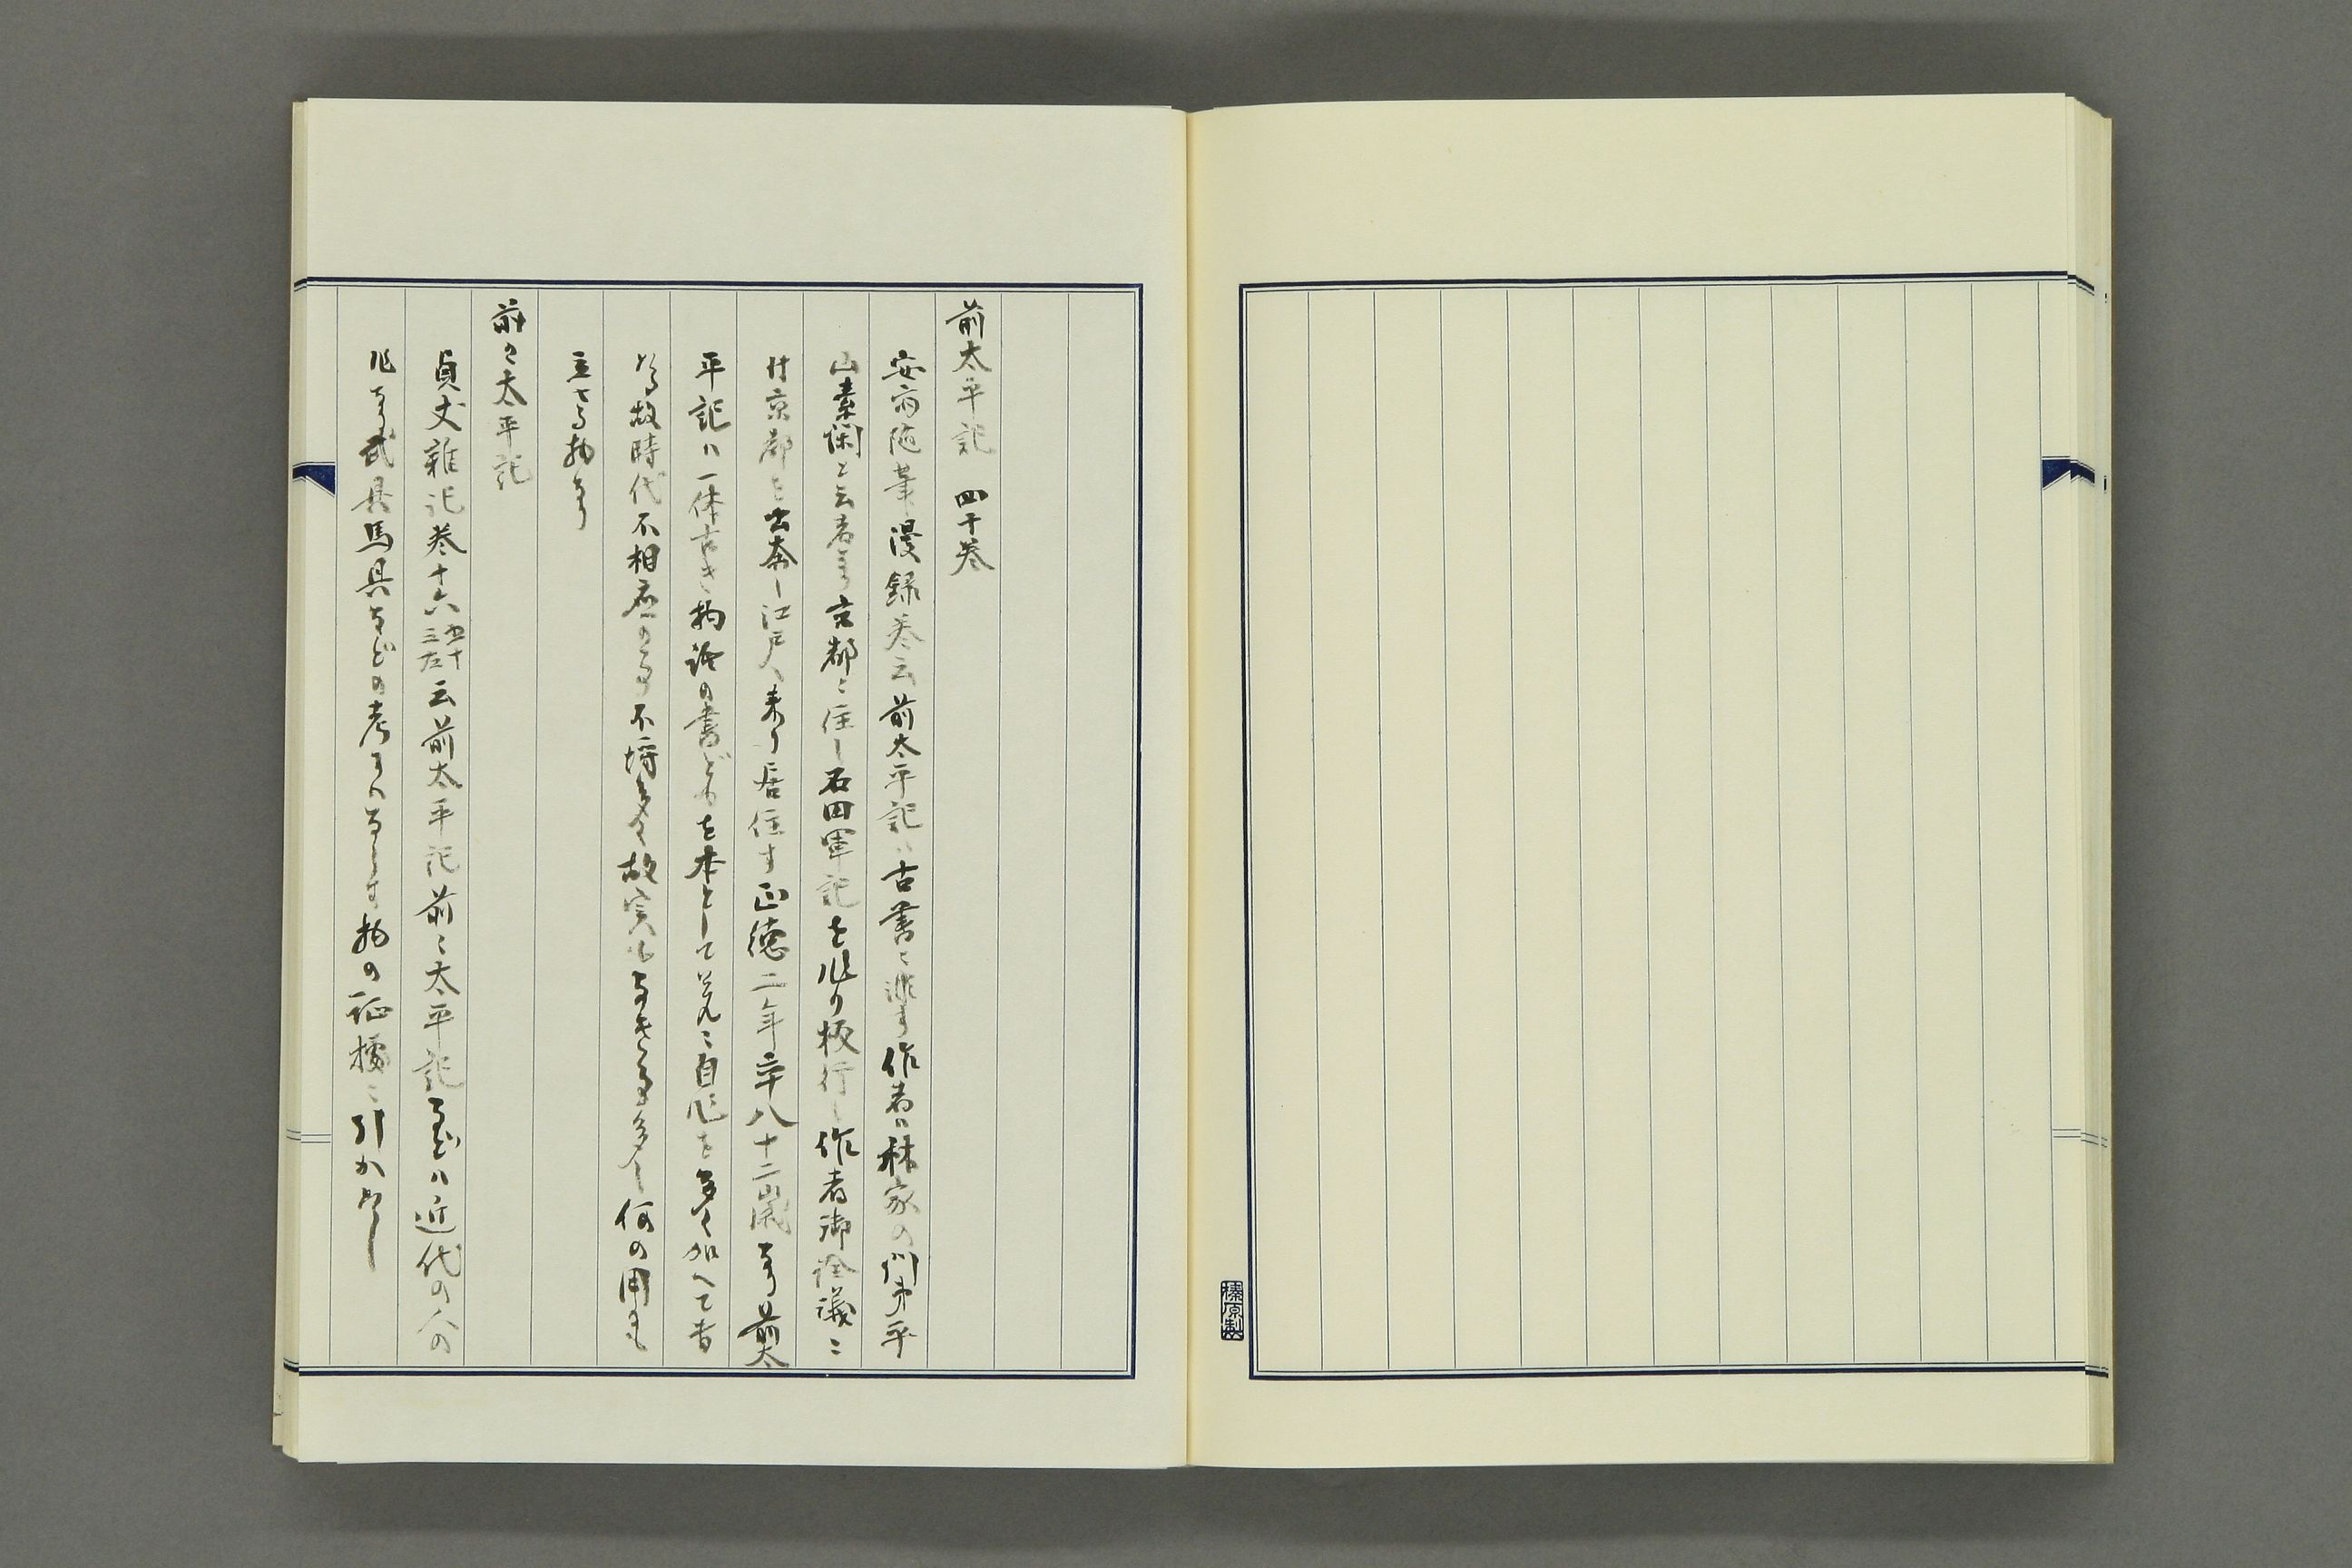 前太平記 四十巻
安斎随筆漫録巻云前太平記ハ古書ニ非す作者ハ林家の門弟平
山素閑と云者なり京都ニ住し石田軍記を作り板行し作者御詮議ニ
付京都を出奔し江戸へ来り居住す正徳二年卒八十二歳なり前太
平記ハ一体古き物語の書どもを本として夫ニ自作を多く加へて書
たる故時代不相応の事不埒多く故実もなき事多し何の用にも
立さる物なり
前々太平記
貞丈雑記巻十六五十三左云前太平記前ニ太平記なとハ近代の人の
作なり武具馬具などの考にハならす物の証拠ニ引かたし
榛原製